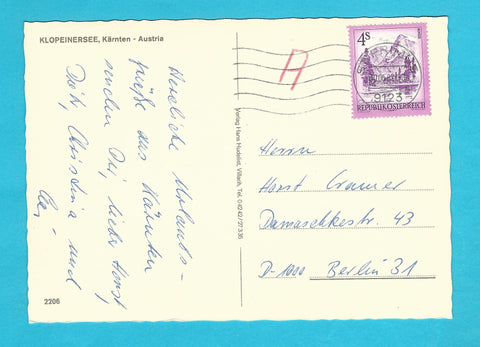 KLOPEINERSEE, Kärnten - Austria
Herzliche Urlaubs-
grüße aus Kärnten
senden Dir, lieber Horst,
Christina und
2206
Verlag Hans Hudelist, Villach, Tel. 04242/27336
A
4S
9123
REPUBLIK ÖSTERREICH
Herrn
Horst Cramer
Damaschkestr. 43
D-1000 Berlin 31